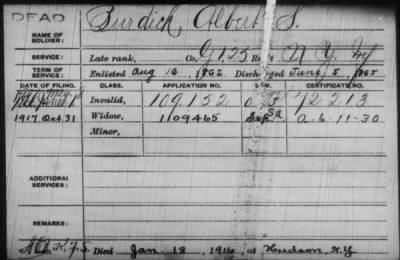 DEAD
Burdick, Albert S.
NAME OF SOLDIER:
SERVICE: Late rank, Co. G, 125 Reg't N.Y. Inf
TERM OF SERVICE: Enlisted Aug 16, 1862 Discharged June 5, 1865
DATE OF FILING. CLASS. APPLICATION NO. LAW. CERTIFICATE NO.
Invalid, 109152 72213
1917 Oct. 31 Widow, 1109465 A-6-11-30
Minor,
ADDITIONAL SERVICES:
REMARKS:
Died Jan 18, 1916, at Hudson, N.Y.